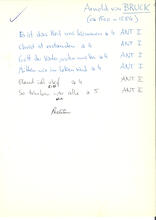 Arnold von BRUCK
(ca 1500 - 1554)
Es ist das Heil uns kommen a 4 ANT I
Christ ist erstanden a 4 ANT I
Gott der Vater wohn uns bei a 4 ANT I
Mitten wir im Leben sind a 4 ANT I
a 4 ANT I
So trinken wir alle a 5 ANT I